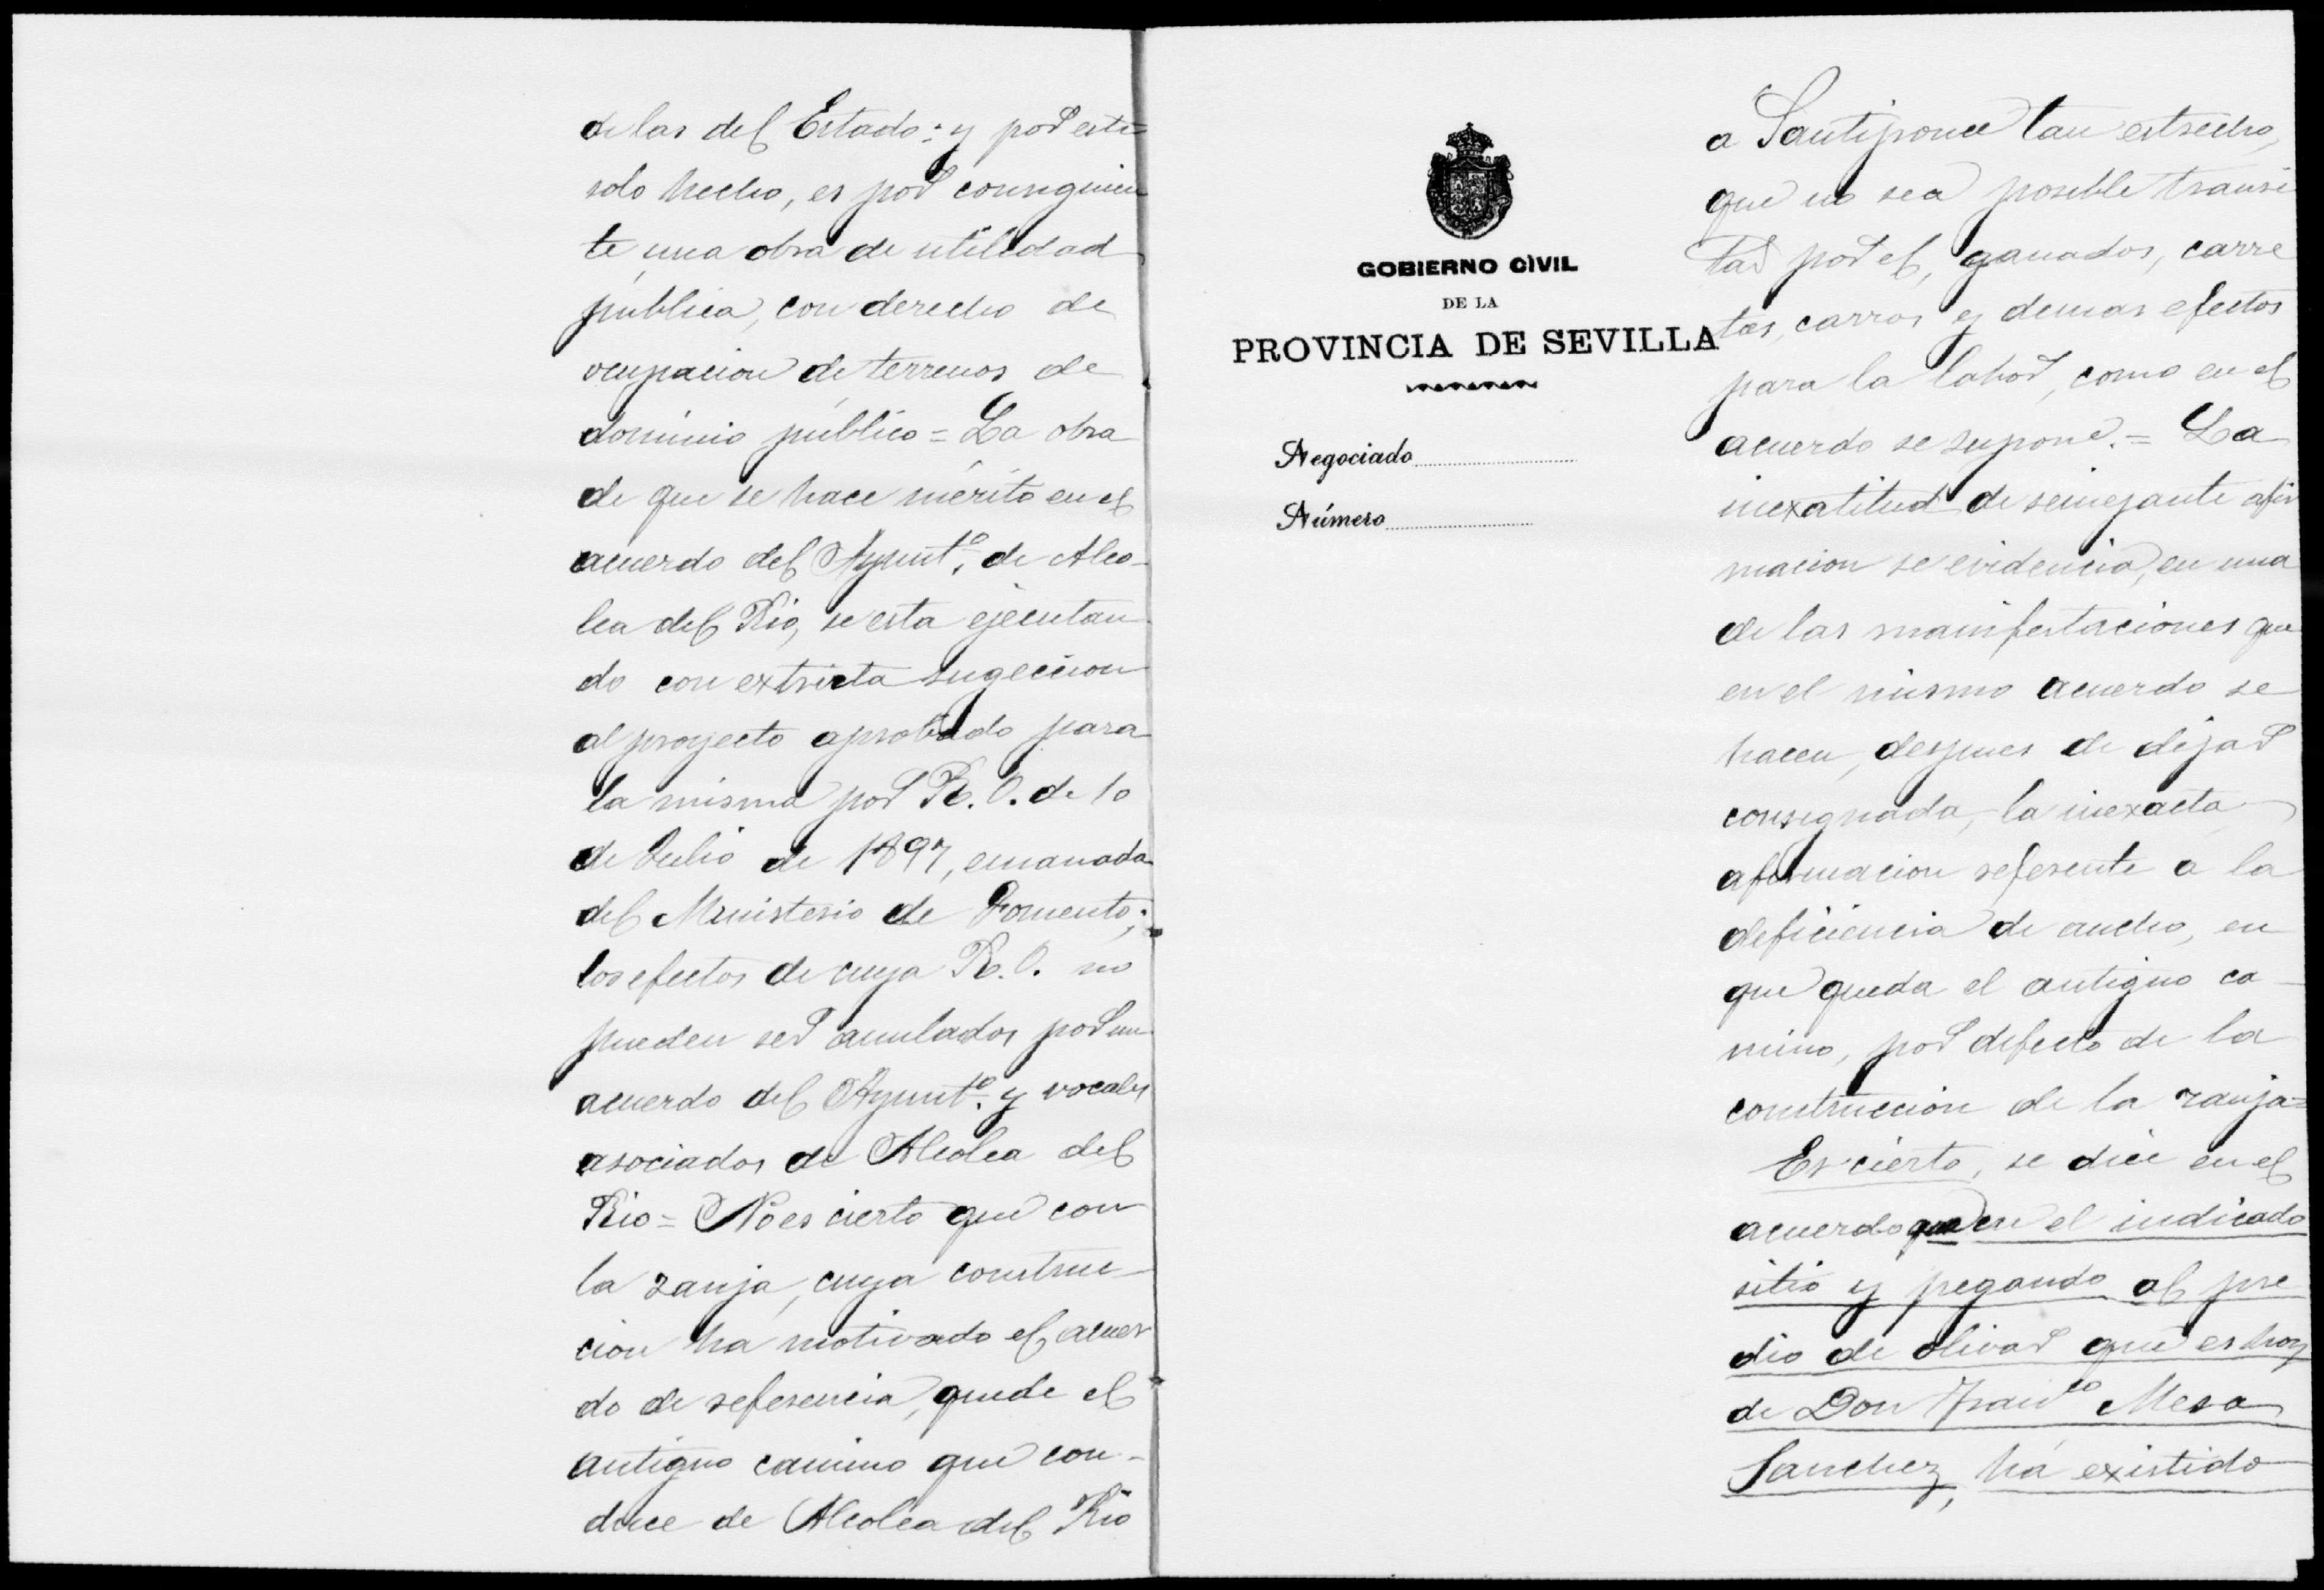 de las del Estado: y por este
solo hecho, es por consiguien
te una obra de utilidad
pública, con derecho de
ocupacion de terrenos de
dominio público = La obra
de que se hace mérito en el
acuerdo del Ayuntº. de Alco-
lea del Rio, se esta ejecutan
do con extricta sugeccion
al proyecto aprobado para
la misma por R. O. de 10
de Julio de 1897, emanada
del Ministerio de Fomento;
los efectos de cuya R. O. no
pueden ser anulados por un
acuerdo del Ayuntº. y vocales
asociados de Alcolea del
Rio = No es cierto que con
la zanja, cuya construc-
cion ha motivado el acuer
do de referencia, quede el
antiguo camino que con-
duce de Alcolea del Rio
GOBIERNO CIVIL
DE LA
PROVINCIA DE SEVILLA
Negociado
Número
a Santiponce tan estrecho,
que no sea posible transi
tar por el, ganados, carre
tas, carros y demas efectos
para la labor, como en el
acuerdo se supone. = La
inexatitud de semejante afir
macion se evidencia, en una
de las manifestaciones que
en el mismo acuerdo se
hacen, despues de dejar
consignada, la inexacta
afirmacion referente a la
deficiencia de ancho, en
que queda el antiguo ca-
mino, por defecto de la
construccion de la zanja =
Es cierto, se dice en el
acuerdo que en el indicado
sitio y pegando al pre
dio de olivar que es hoy
de Don Francº Mesa
Sanchez, há existido